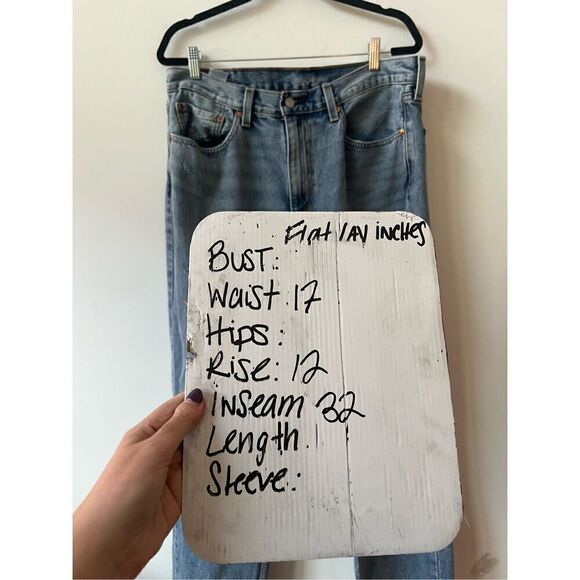 Flat lay inches
Bust:
Waist 17
Hips:
Rise: 12
Inseam 32
Length
Sleeve: